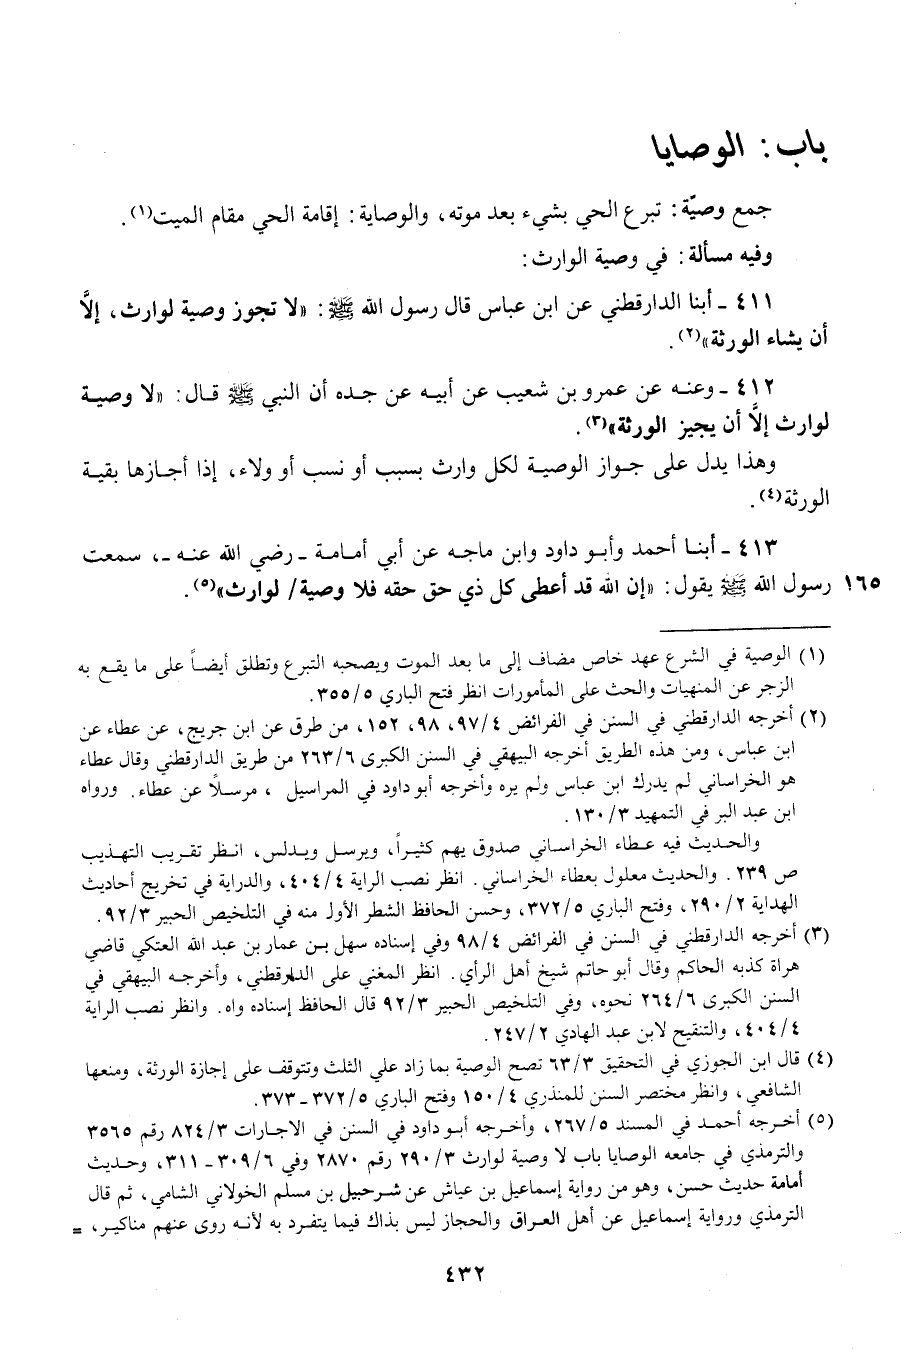 باب: الوصايا
جمع وصيّة: تبرع الحي بشيء بعد موته، والوصاية: إقامة الحي مقام الميت(١).
وفيه مسألة: في وصية الوارث:
٤١١ ـ أبنا الدارقطني عن ابن عباس قال رسول الله ﷺ: «لا تجوز وصية لوارث، إلاَّ
أن يشاء الورثة»(٢).
٤١٢ ـ وعنه عن عمرو بن شعيب عن أبيه عن جده أن النبي ﷺ قال: «لا وصية
لوارث إلاَّ أن يجيز الورثة»(٣).
وهذا يدل على جواز الوصية لكل وارث بسبب أو نسب أو ولاء، إذا أجازها بقية
الورثة(٤).
٤١٣ ـ أبنا أحمد وأبو داود وابن ماجه عن أبي أمامة ـ رضي الله عنه ـ، سمعت
١٦٥ رسول الله ﷺ يقول: «إن الله قد أعطى كل ذي حق حقه فلا وصية/ لوارث»(٥).
(١) الوصية في الشرع عهد خاص مضاف إلى ما بعد الموت ويصحبه التبرع وتطلق أيضاً على ما يقع به
الزجر عن المنهيات والحث على المأمورات انظر فتح الباري ٣٥٥/٥.
(٢) أخرجه الدارقطني في السنن في الفرائض ٩٧/٤، ٩٨، ١٥٢، من طرق عن ابن جريج، عن عطاء عن
ابن عباس، ومن هذه الطريق أخرجه البيهقي في السنن الكبرى ٢٦٣/٦ من طريق الدارقطني وقال عطاء
هو الخراساني لم يدرك ابن عباس ولم يره وأخرجه أبو داود في المراسيل ، مرسلاً عن عطاء. ورواه
ابن عبد البر في التمهيد ١٣٠/٣.
والحديث فيه عطاء الخراساني صدوق يهم كثيراً، ويرسل ويدلس، انظر تقريب التهذيب
ص ٢٣٩. والحديث معلول بعطاء الخراساني. انظر نصب الراية ٤٠٤/٤، والدراية في تخريج أحاديث
الهداية ٢٩٠/٢، وفتح الباري ٣٧٢/٥، وحسن الحافظ الشطر الأول منه في التلخيص الحبير ٩٢/٣.
(٣) أخرجه الدارقطني في السنن في الفرائض ٩٨/٤ وفي إسناده سهل بن عمار بن عبد الله العتكي قاضي
هراة كذبه الحاكم وقال أبو حاتم شيخ أهل الرأي. انظر المغني على الدارقطني، وأخرجه البيهقي في
السنن الكبرى ٢٦٤/٦ نحوه، وفي التلخيص الحبير ٩٢/٣ قال الحافظ إسناده واه. وانظر نصب الراية
٤٠٤/٤، والتنقيح لابن عبد الهادي ٢٤٧/٢.
(٤) قال ابن الجوزي في التحقيق ٦٣/٣ تصح الوصية بما زاد علي الثلث وتتوقف على إجازة الورثة، ومنعها
الشافعي، وانظر مختصر السنن للمنذري ١٥٠/٤ وفتح الباري ٣٧٢/٥ـ٣٧٣.
(٥) أخرجه أحمد في المسند ٢٦٧/٥، وأخرجه أبو داود في السنن في الاجارات ٨٢٤/٣ رقم ٣٥٦٥
والترمذي في جامعه الوصايا باب لا وصية لوارث ٢٩٠/٣ رقم ٢٨٧٠ وفي ٣٠٩/٦ـ ٣١١، وحديث
أمامة حديث حسن، وهو من رواية إسماعيل بن عياش عن شرحبيل بن مسلم الخولاني الشامي، ثم قال
الترمذي ورواية إسماعيل عن أهل العراق والحجاز ليس بذاك فيما يتفرد به لأنه روى عنهم مناكير، =
٤٣٢